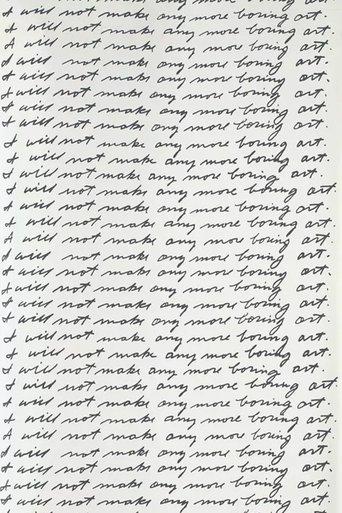 I will not make any more boring art.
I will not make any more boring art.
I will not make any more boring art.
I will not make any more boring art.
I will not make any more boring art.
I will not make any more boring art.
I will not make any more boring art.
I will not make any more boring art.
I will not make any more boring art.
I will not make any more boring art.
I will not make any more boring art.
I will not make any more boring art.
I will not make any more boring art.
I will not make any more boring art.
I will not make any more boring art.
I will not make any more boring art.
I will not make any more boring art.
I will not make any more boring art.
I will not make any more boring art.
I will not make any more boring art.
I will not make any more boring art.
I will not make any more boring art.
I will not make any more boring art.
I will not make any more boring art.
I will not make any more boring art.
I will not make any more boring art.
I will not make any more boring art.
I will not make any more boring art.
I will not make any more boring art.
I will not make any more boring art.
I will not make any more boring art.